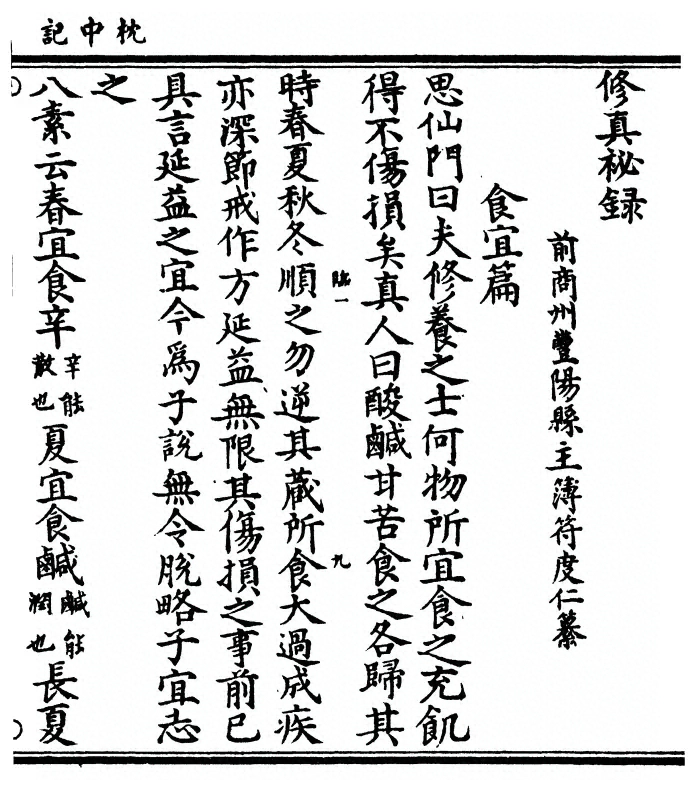 枕中記
修真祕録
前商州豐陽縣主簿符度仁纂
食宜篇
思仙門曰夫修養之士何物所宜食之充飢
得不傷損矣真人曰酸鹹甘苦食之各歸其
時春夏秋冬順之勿逆其蔵所食大過成疾
臨一
九
亦深節戒作方延益無限其傷損之事前已
具言延益之宜今爲子說無令脫略子宜志
之
八素云春宜食辛辛能散也夏宜食鹹鹹能潤也長夏